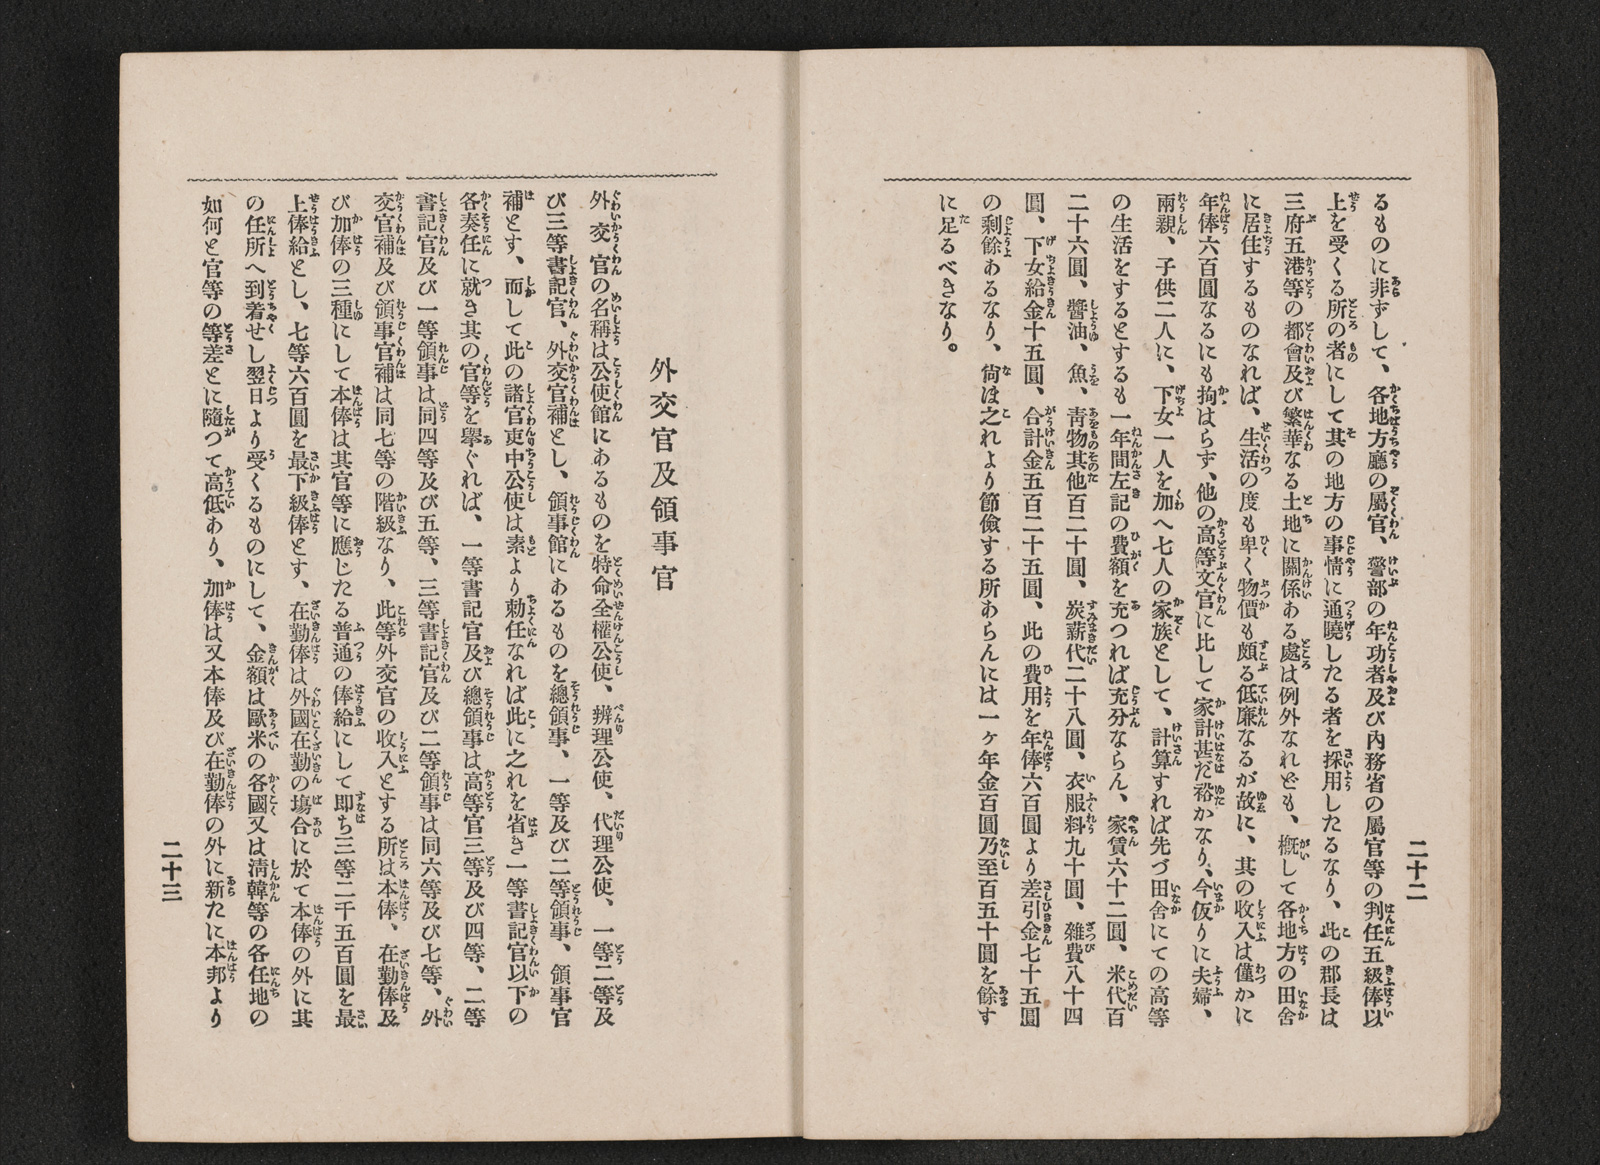 二十二
るものに非ずして、各地方廳の屬官、警部の年功者及び內務省の屬官等の判任五級俸以
上を受くる所の者にして其の地方の事情に通曉したる者を採用したるなり、此の郡長は
三府五港等の都會及び繁華なる土地に關係ある處は例外なれども、概して各地方の田舍
に居住するものなれば、生活の度も卑く物價も頗る低廉なるが故に、其の收入は僅かに
年俸六百圓なるにも拘はらず、他の高等文官に比して家計甚だ裕かなり、今仮りに夫婦、
兩親、子供二人に、下女一人を加へ七人の家族として、計算すれば先づ田舍にての高等
の生活をするとするも一年間左記の費額を充つれば充分ならん、家賃六十二圓、米代百
二十六圓、醬油、魚、靑物其他百二十圓、炭薪代二十八圓、衣服料九十圓、雜費八十四
圓、下女給金十五圓、合計金五百二十五圓、此の費用を年俸六百圓より差引金七十五圓
の剩餘あるなり、尙ほ之れより節儉する所あらんには一ヶ年金百圓乃至百五十圓を餘す
に足るべきなり。
外交官及領事官
外交官の名稱は公使館にあるものを特命全權公使、辨理公使、代理公使、一等二等及
び三等書記官、外交官補とし、領事館にあるものを總領事、一等及び二等領事、領事官
補とす、而して此の諸官吏中公使は素より勅任なれば此に之れを省き一等書記官以下の
各奏任に就き其の官等を擧ぐれば、一等書記官及び總領事は高等官三等及び四等、二等
書記官及び一等領事は同四等及び五等、三等書記官及び二等領事は同六等及び七等、外
交官補及び領事官補は同七等の階級なり、此等外交官の收入とする所は本俸、在勤俸及
び加俸の三種にして本俸は其官等に應じたる普通の俸給にして即ち三等二千五百圓を最
上俸給とし、七等六百圓を最下級俸とす、在勤俸は外國在勤の塲合に於て本俸の外に其
の任所へ到着せし翌日より受くるものにして、金額は歐米の各國又は淸韓等の各任地の
如何と官等の等差とに隨つて高低あり、加俸は又本俸及び在勤俸の外に新たに本邦より
二十三